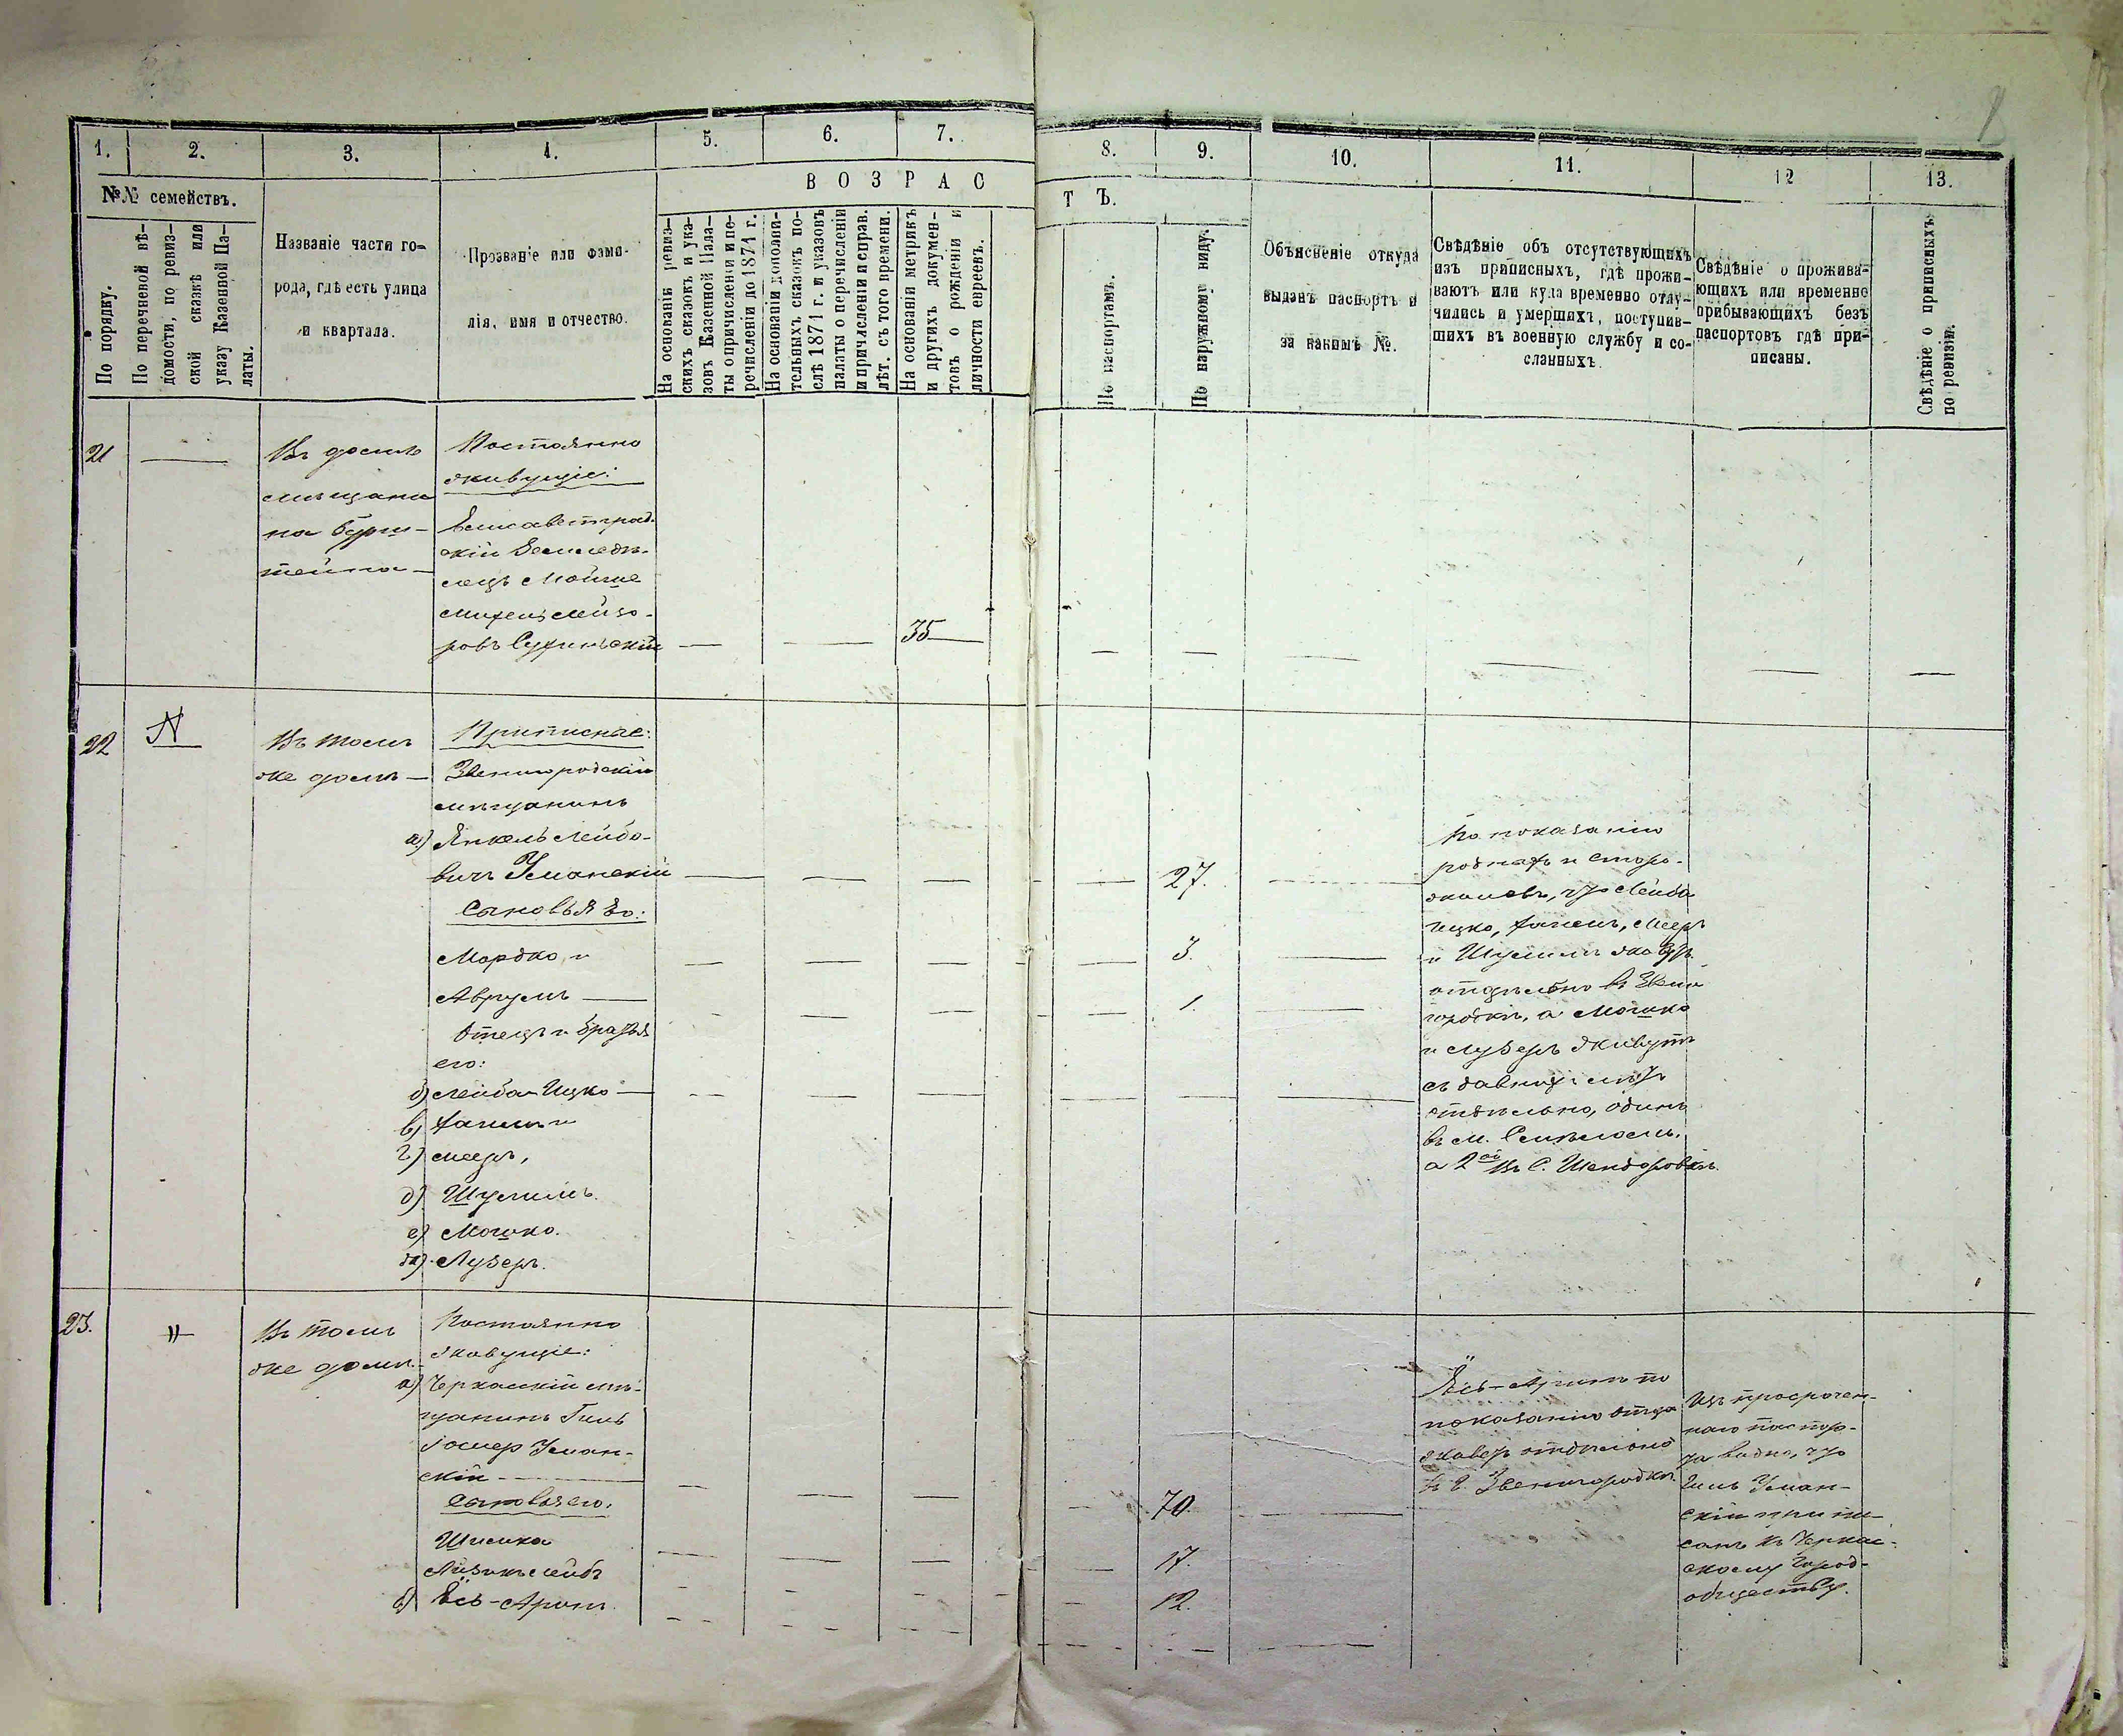 1.
2.
3.
4.
5.
6.
7.
8.
9.
10.
11.
12
13.
№№ семействъ.
По порядку.
По перечневой вѣ-
домости, по ревиз-
ской сказкѣ или
указу Казенной Па-
латы.
Названіе части го-
рода, гдѣ есть улица
и квартала.
Прозваніе или фами-
лія, имя и отчество.
ВОЗРАС
ТЪ.
На основаніи ревиз-
скихъ сказокъ и ука-
зовъ Казенной Пала-
ты о причисленіи и пе-
речисленіи до 1871 г.
На основаніи дополни-
тельныхъ сказокъ по-
слѣ 1871 г. и указовъ
палаты о перечисленіи
и причисленіи и справ.
лѣт. съ того времени.
На основаніи метрикъ
и другихъ докумен-
товъ о рожденіи и
личности евреевъ.
По паспортамъ.
По наружному виду.
Объясненіе откуда
выданъ паспортъ и
за какимъ №.
Свѣдѣніе объ отсутствующихъ
изъ приписныхъ, гдѣ прожи-
ваютъ или куда временно отлу-
чились и умершихъ, поступив-
шихъ въ военную службу и со-
сланныхъ.
Свѣдѣніе о прожива-
ющихъ или временно
прибывающихъ безъ
паспортовъ гдѣ при-
писаны.
Свѣдѣніе о приписныхъ
по ревизіи.
21
Въ домѣ
мѣщани
на Бурш-
тейна
Постоянно
живущіе:
Елисаветград-
скій Земледѣ-
лецъ Мойше
Михель Лейзо-
ровъ
35
22
N
Въ томъ
же домѣ
Приписные:
Звенигородскій
мѣщанинъ
а) Янкель Лейбо-
вичъ Уманскій
27.
Сыновья Его:
Мордко и
3.
Аврумъ
1.
Отецъ и братья
его:
б) Лейба Ицко
в) и
г) Мееръ,
д) Шулимъ.
е) Мошко.
ж) Лузеръ.
По показанію
родныхъ и старо-
жиловъ, что Лейба
Ицко, Мееръ
и Шулимъ живутъ
отдѣльно въ Звени
городкѣ, а Мошко
и Лузеръ живутъ
съ давнихъ лѣтъ
отдѣльно, одинъ
въ м.
а 2ой въ С. Шендеровкѣ.
23.
"
Въ томъ
же домѣ.
Постоянно
живущіе:
а) Черкасскій мѣ-
щанинъ Гиль
Уман-
скій
70
Сыновья его:
Шимка
17.
Айзикъ Лейбъ
12.
б) Ёсь-Аронъ
Ёсь-Аронъ по
показанію отца
живетъ отдѣльно
въ г. Звенигородкѣ
Изъ просрочен-
наго паспор-
та видно, что
Гиль Уман-
скій припи-
санъ къ Черкас-
скому город-
обществу.